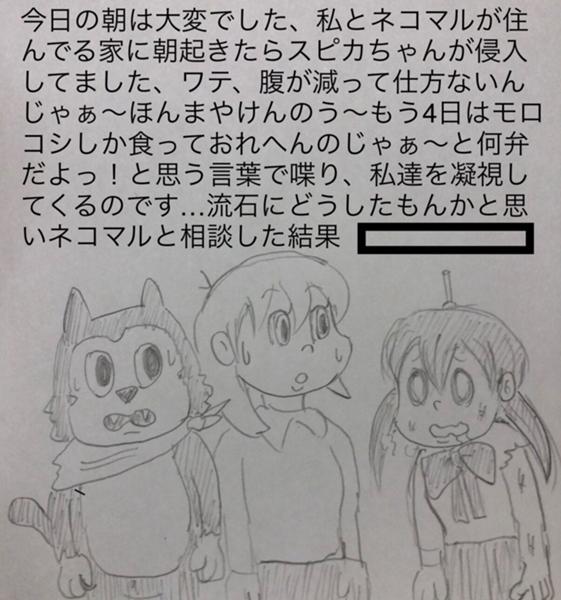 今日の朝は大変でした、私とネコマルが住
んでる家に朝起きたらスピカちゃんが侵入
してました、ワテ、腹が減って仕方ないん
じゃぁ〜ほんまやけんのう〜もう4日はモロ
コシしか食っておれへんのじゃぁ〜と何弁
だよっ！と思う言葉で喋り、私達を凝視し
てくるのです…流石にどうしたもんかと思
いネコマルと相談した結果